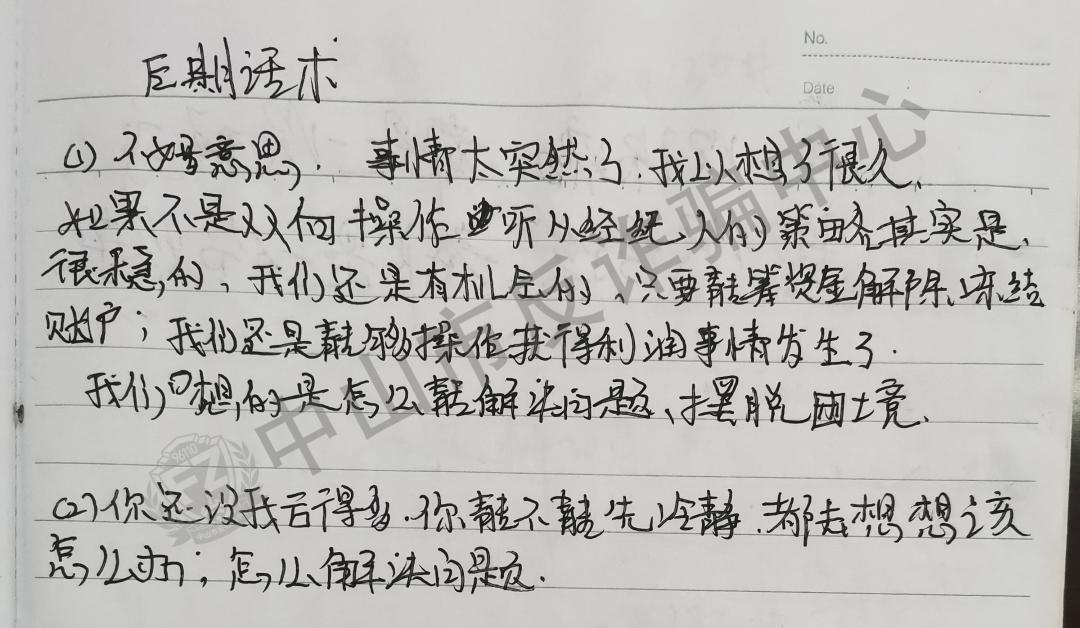 No.
后期话术
Date
(1) 不好意思, 事情太突然了.我以想了很久、
如果不是双向操作 听从经纪人的策略其实是、
很稳的、我们还是有机会的、只要能筹资金解除冻结
账户; 我们还是能够操作获得利润事情发生了.
我们 想的是怎么能解决问题、摆脱困境、
(2)你还没我亏得多.你能不能先冷静.都去想想该
怎么办; 怎么解决问题.
中山市反诈骗中心
96110